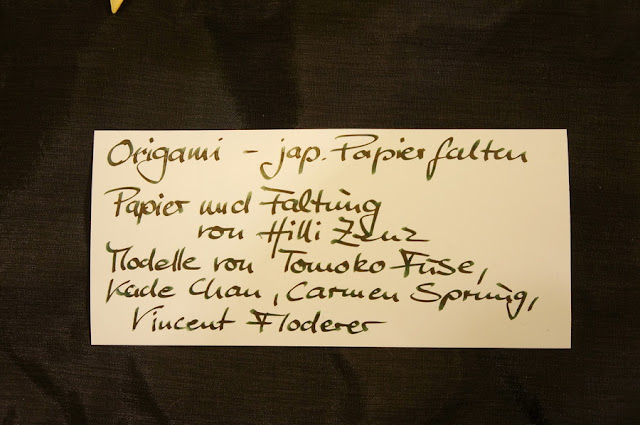 Origami - jap. Papierfalten
Papier und Faltung
von Hilli Zenz
Modelle von Tomoko Fuse,
Kade Chan, Carmen Sprung,
Vincent Floderer